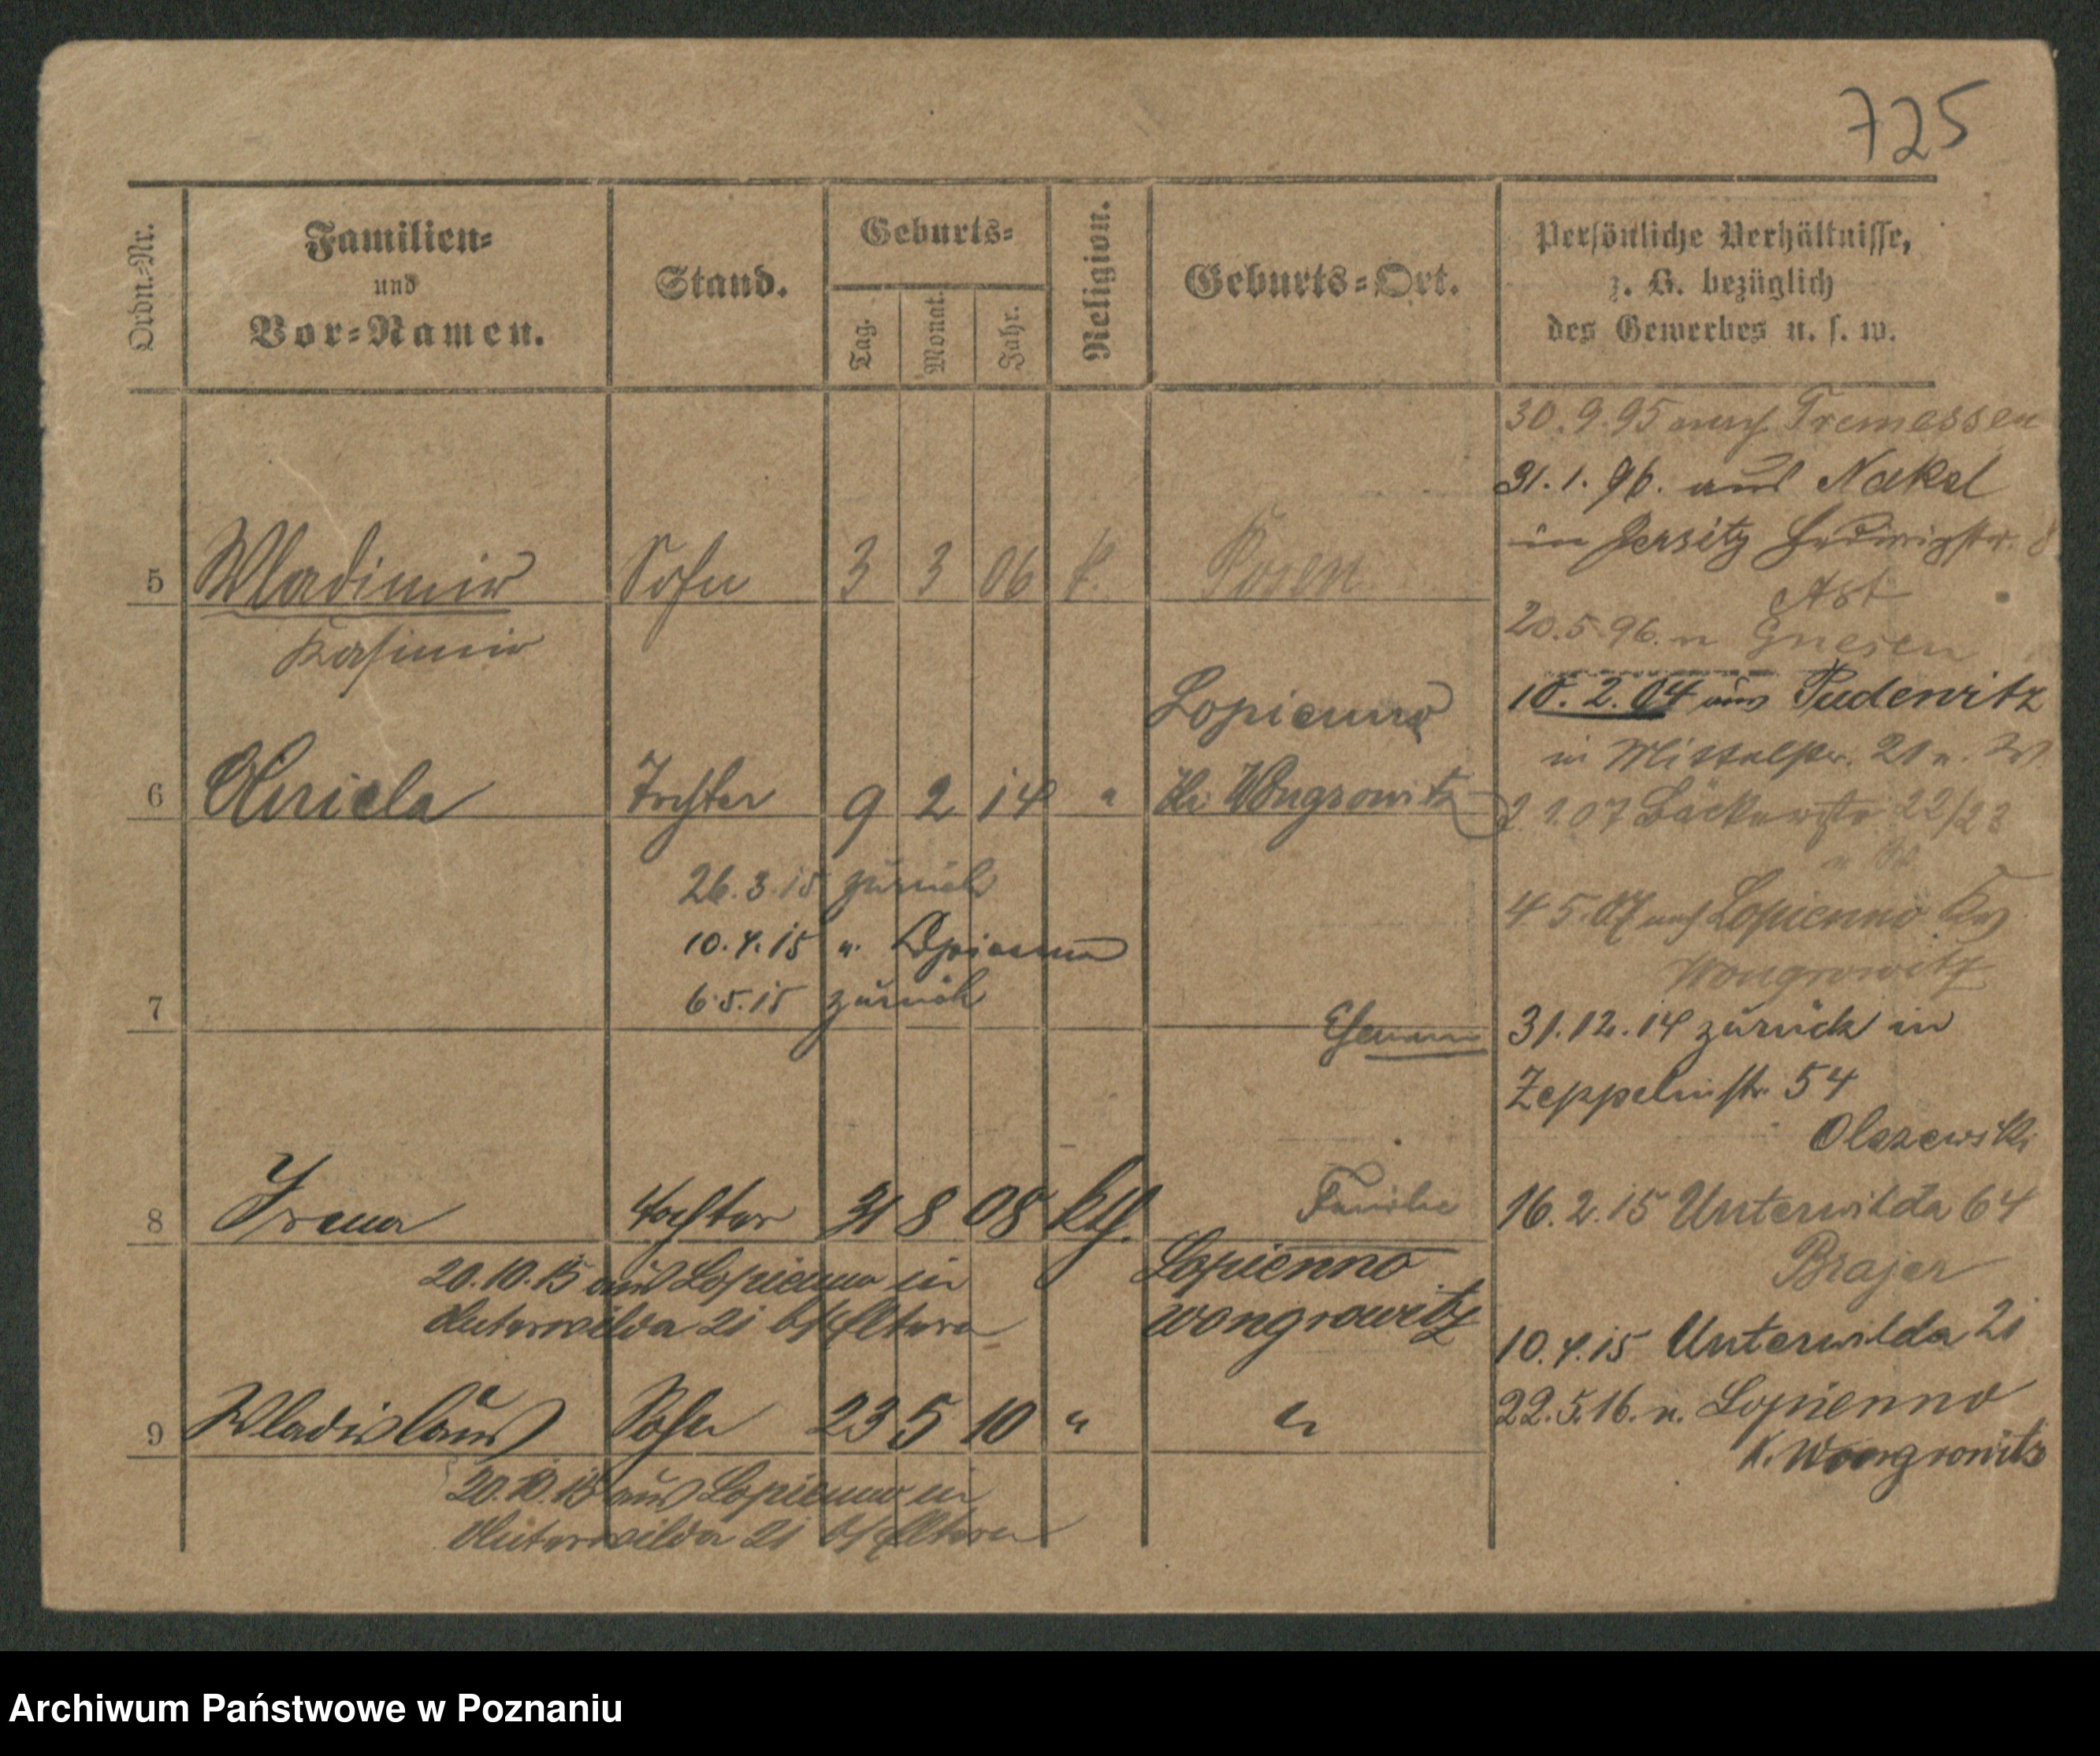 725
Ordn.-Nr.
Familien-
und
Vor-Namen.
Stand.
Geburts-
Tag.
Monat.
Jahr.
Religion.
Geburts-Ort.
Persönliche Verhältnisse,
z. B. bezüglich
des Gewerbes u. s. w.
30.9.95 nach Tremessen
31.1.96. aus Nakel
in Jersitz Hedwigstr. 8
20.5.96. n Gnesen
10.2.04 aus Pudewitz
in Mittelstr. 21
1.07 Bäckerstr 22/23
4 5.07 nach Lopienno Krs
Wongrowitz
31.12.14 zurück in
Zeppelinstr. 54
Olszewski
16.2.15 Unterwilda 64
Brajer
10.4.15 Unterwilda 21
22.5.16. n. Lopienno
K. Wongrowitz
5 Wladimir Sohn 3 3 06 k. Posen
Kasimir
Lopienno
6 Tochter 9 2 14 " Wongrowitz
26.3.15 zurück
10.4.15 n. Lopienno
6.5.15 zurück
7
Ehemann
Familie
8 Irena Tochter 31 8 08 kth. Lopienno
Wongrowitz
20.10.15 aus Lopienno in
Unterwilda 21 b/ Eltern
9 Wladislaus Sohn 23 5 10 " "
20.10.15 aus Lopienno in
Unterwilda 21 b/ Eltern
Archiwum Państwowe w Poznaniu